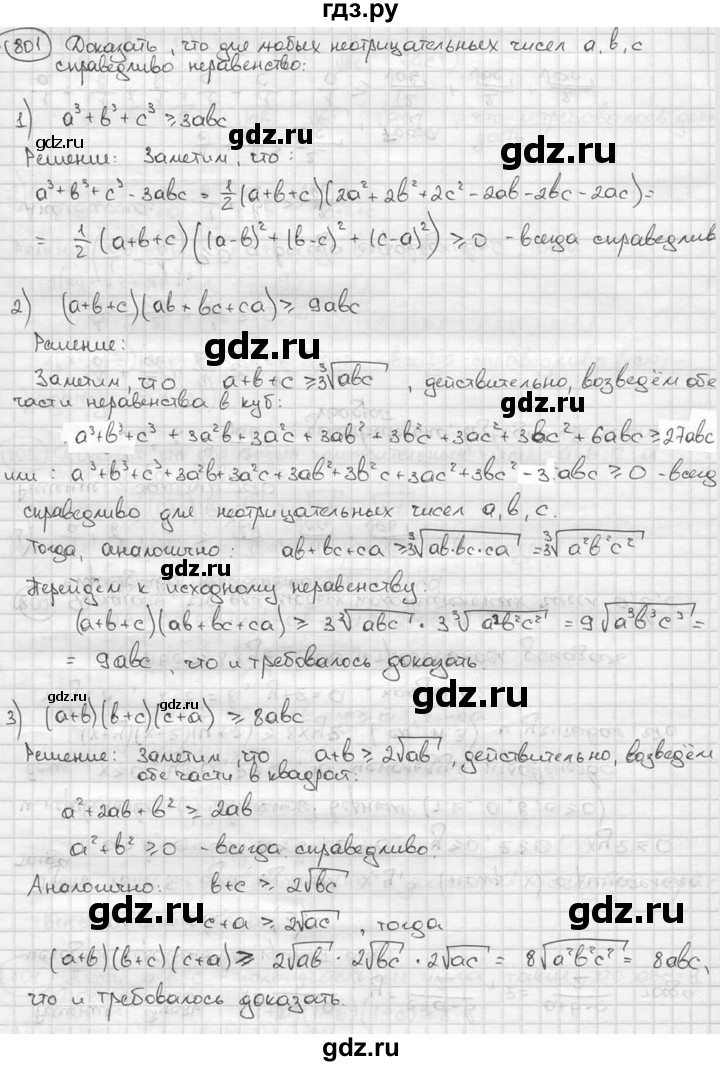 гдз.ру
801 Доказать, что для любых неотрицательных чисел a, b, c
справедливо неравенство:
1) a³+b³+c³ ≥ 3abc
gdz.ru gdz.ru
Решение: Заметим, что:
a³+b³+c³-3abc = 1/2 (a+b+c)(2a²+2b²+2c²-2ab-2bc-2ac)=
= 1/2 (a+b+c)((a-b)²+(b-c)²+(c-a)²) ≥ 0 - всегда справедлив
2) (a+b+c)(ab+bc+ca) ≥ 9abc
Решение:
gdz.ru gdz.ru
Заметим, что a+b+c ≥ 3∛abc, действительно, возведём обе
части неравенства в куб:
a³+b³+c³+3a²b+3a²c+3ab²+3b²c+3ac²+3bc²+6abc ≥ 27abc
или: a³+b³+c³+3a²b+3a²c+3ab²+3b²c+3ac²+3bc²-3abc ≥ 0 - всегд
справедливо для неотрицательных чисел a, b, c.
gdz.ru
Тогда, аналогично: ab+bc+ca ≥ 3∛ab·bc·ca = 3∛a²b²c²
gdz.ru
Перейдём к исходному неравенству:
(a+b+c)(ab+bc+ca) ≥ 3∛abc · 3∛a²b²c² = 9∛a³b³c³ =
= 9abc, что и требовалось доказать.
gdz.ru gdz.ru gdz.ru
3) (a+b)(b+c)(c+a) ≥ 8abc
Решение: Заметим, что a+b ≥ 2√ab, действительно, возведём
обе части в квадрат:
a²+2ab+b² ≥ 2ab
a²+b² ≥ 0 - всегда справедливо.
Аналогично: b+c ≥ 2√bc
gdz.ru gdz.ru
c+a ≥ 2√ac, тогда
(a+b)(b+c)(c+a) ≥ 2√ab · 2√bc · 2√ac = 8√a²b²c² = 8abc,
что и требовалось доказать.
gdz.ru